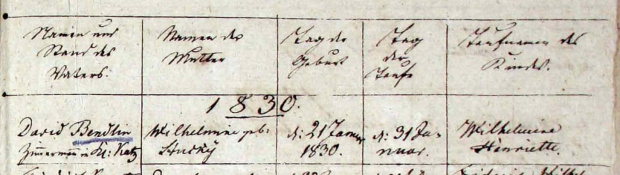 Namen und Stand des Vaters.
Namen der Mutter
Tag der Geburt
Tag der Taufe
Taufnamen des Kindes.
1830.
David Bendlin
Zimmermann in Kl: Katz
Wilhelmine geb:
d: 21 Januar 1830.
d: 31 Januar.
Wilhelmine Henriette.